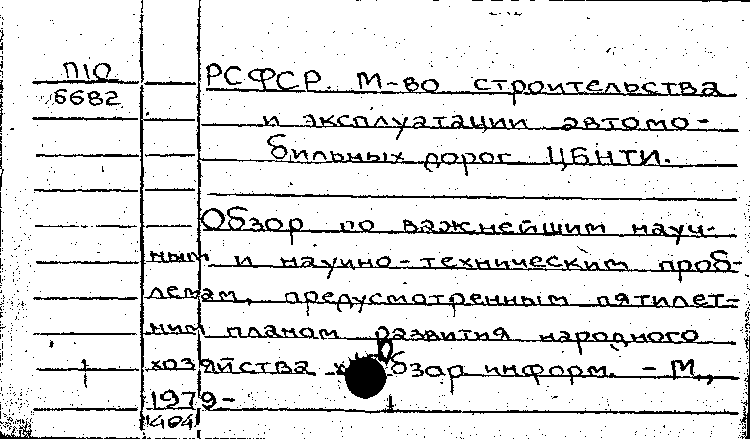 П10
6682
РСФСР. М-во строительства
и эксплуатации автомо-
бильных дорог ЦБНТИ.
Обзор по важнейшим науч-
ным и научно-техническим проб-
лемам, предусмотренным пятилет-
ним планом развития народного
хозяйства Обзор информ. - М.,
1979-
1404